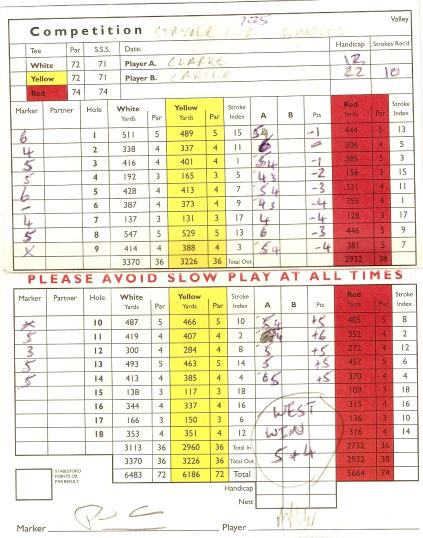 1225
Valley
Competition STRYDER CUP SINGLES
Tee Par S.S.S. Date: Handicap Strokes Rec'd
White 72 71 Player A. CLARKE 12
Yellow 72 71 Player B. CARTER 22 10
Red 74 74
Marker Partner Hole White Yards Par Yellow Yards Par Stroke Index A B Pts Red Yards Par Stroke Index
6 1 511 5 489 5 15 54 -1 444 5 13
4 2 338 4 337 4 11 6 306 4 5
5 3 416 4 401 4 1 54 -1 385 5 3
5 4 192 3 165 3 5 43 -2 156 3 15
6 5 428 4 413 4 7 54 -3 331 4 11
- 6 387 4 373 4 9 43 -4 355 4 1
4 7 137 3 131 3 17 4 -4 128 3 17
5 8 547 5 529 5 13 6 -3 446 5 9
x 9 414 4 388 4 3 54 -4 381 5 7
3370 36 3226 36 Total Out 2932 38
PLEASE AVOID SLOW PLAY AT ALL TIMES
Marker Partner Hole White Yards Par Yellow Yards Par Stroke Index A B Pts Red Yards Par Stroke Index
x 10 487 5 466 5 10 54 +5 405 5 8
5 11 419 4 407 4 2 4 +6 352 4 2
3 12 300 4 284 4 8 5 +5 272 4 12
5 13 493 5 463 5 14 5 +5 457 5 6
5 14 413 4 385 4 4 65 +5 370 4 4
15 138 3 117 3 18 109 3 18
16 344 4 337 4 16 WEST 315 4 16
17 166 3 150 3 6 WIN 136 3 10
18 353 4 351 4 12 5+4 316 4 14
3113 36 2960 36 Total In 2732 36
3370 36 3226 36 Total Out 2932 38
6483 72 6186 72 Total 5664 74
STABLEFORD POINTS OR PAR RESULT
Handicap
Nett
Marker Player